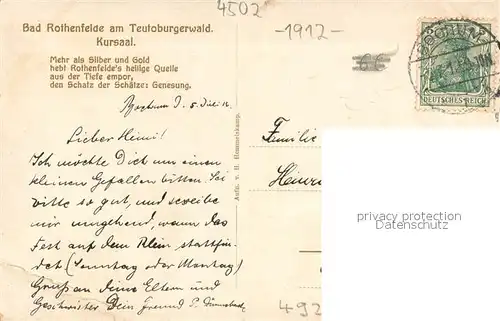 4502
-1912-
Bad Rothenfelde am Teutoburgerwald.
Kursaal.
Mehr als Silber und Gold
hebt Rothenfelde's heilige Quelle
aus der Tiefe empor,
den Schatz der Schätze: Genesung.
BOCHUM
DEUTSCHES REICH
Bochum d. 5. Juli 12.
Lieber Heini!
Ich möchte Dich um einen
kleinen Gefallen bitten. Sei
bitte so gut, und schreibe
mir umgehend, wann das
Fest auf dem Klein stattfin-
det (Sonntag oder Montag)
Gruß an deine Eltern und
Geschwister Dein Freund
Aufn. v. H. Hemmelskamp.
Familie
Heinr
privacy protection
www.oldthing.de
492